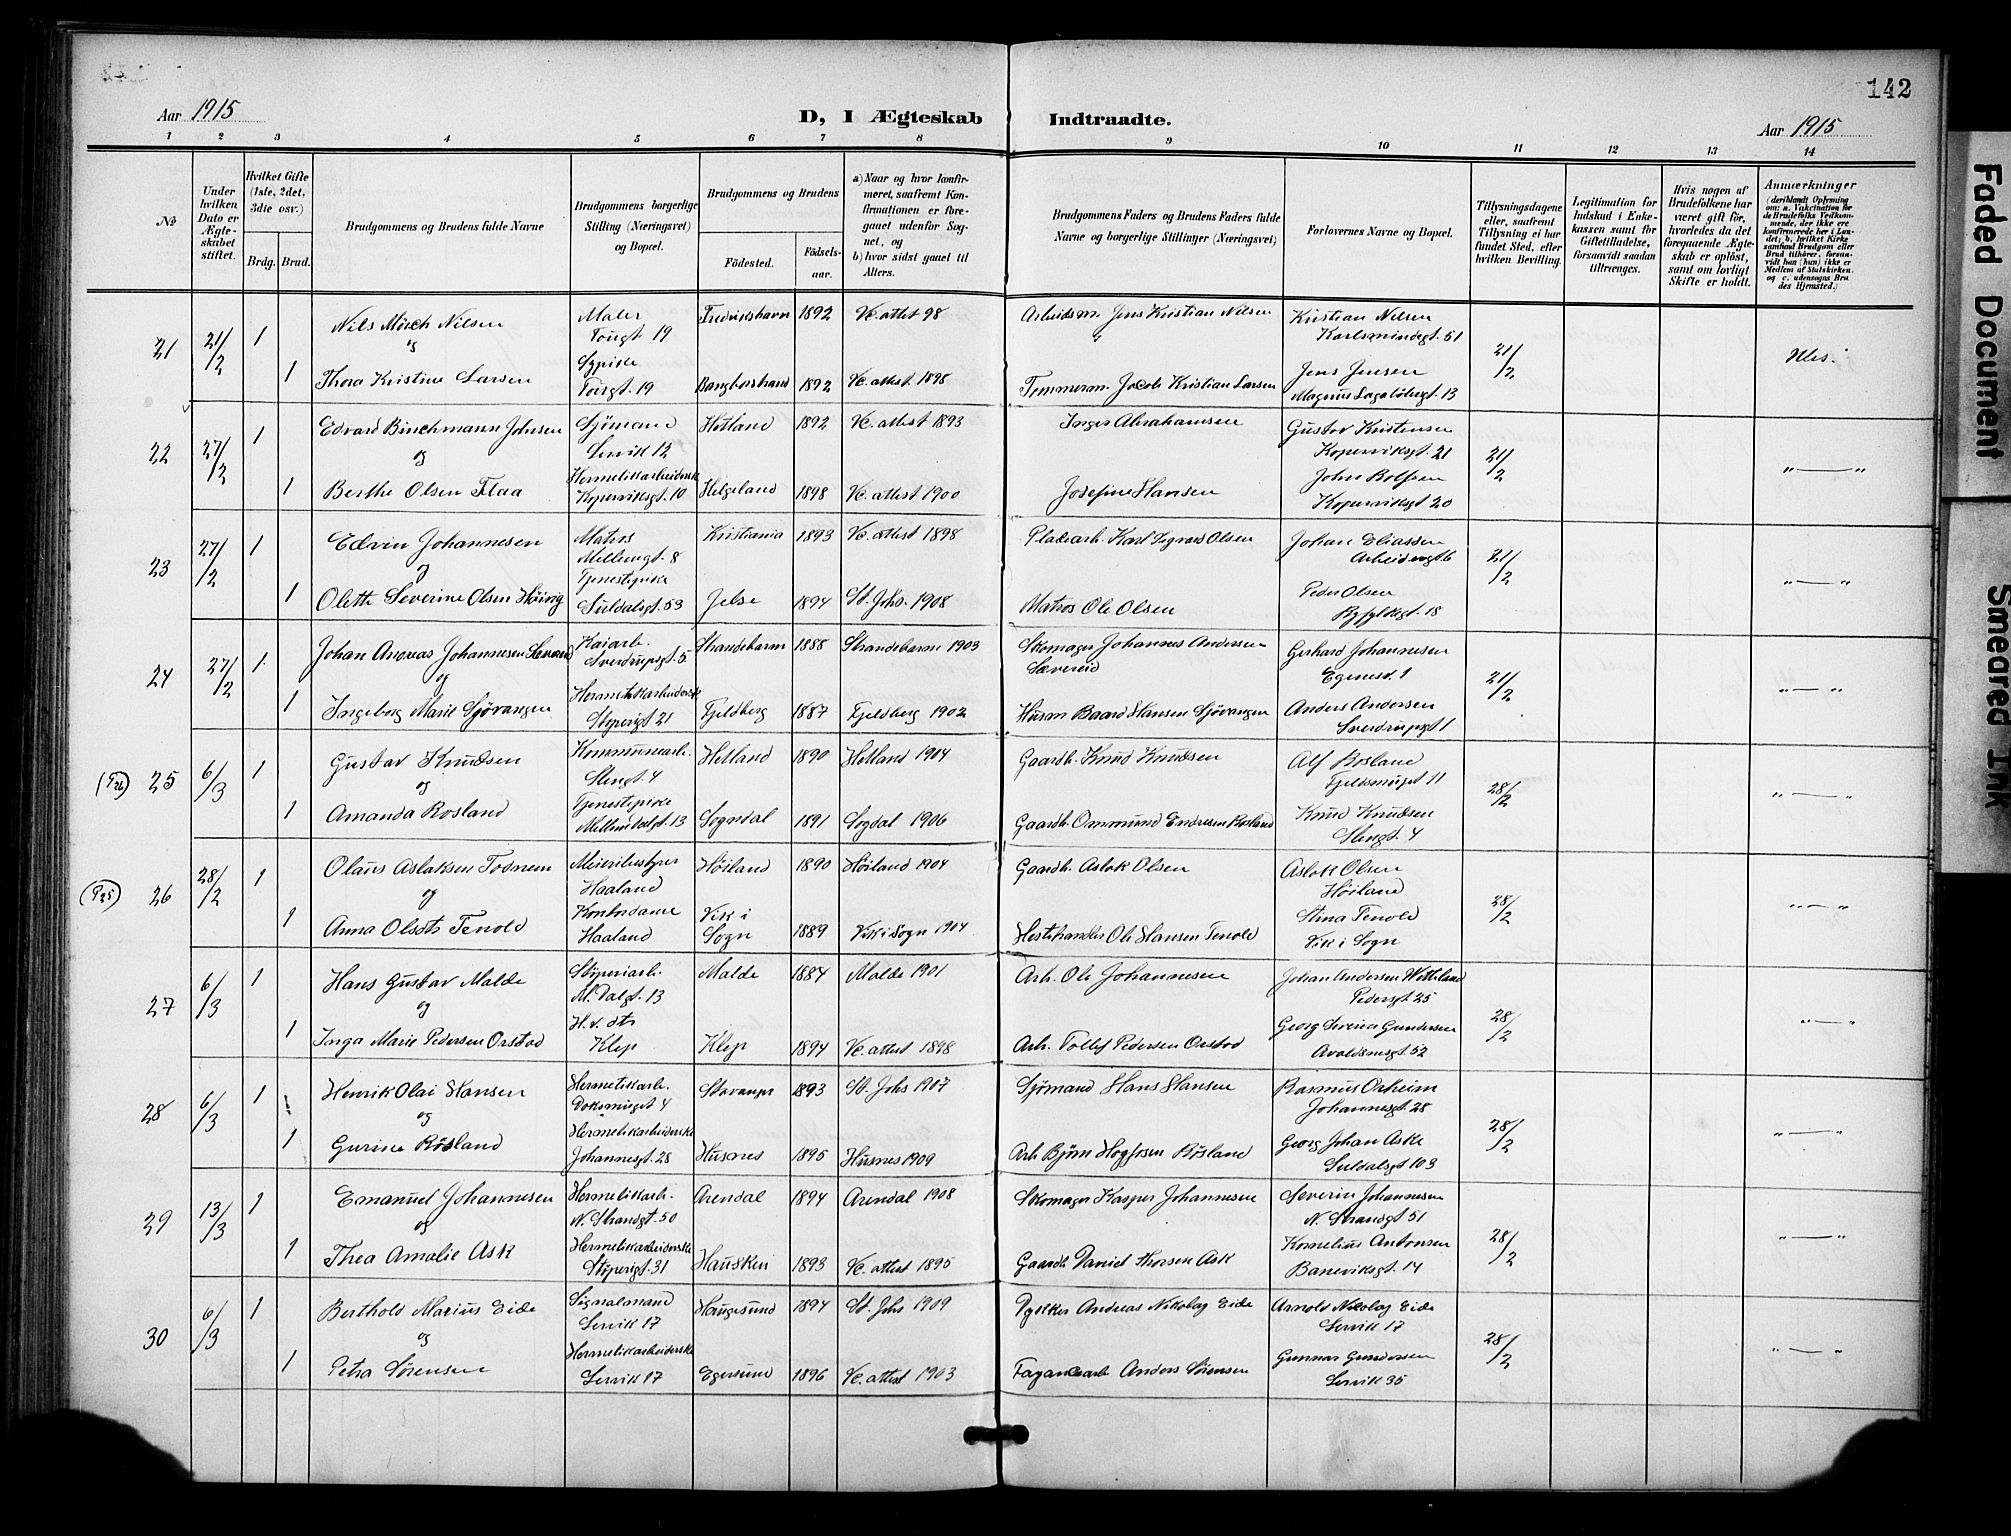 142
Aar 1915
D, I Ægteskab Indtraadte.
Aar 1915
1 2 3 4 5 6 7 8 9 10 11 12 13 14
№
Under hvilken Dato er Ægteskabet stiftet.
Hvilket Gifte (1ste, 2det, 3die osv.)
Brdg. Brud.
Brudgommens og Brudens fulde Navne
Brudgommens borgerlige Stilling (Næringsvei) og Bopæl.
Brudgommens og Brudens
Fødested.
Fødselsaar.
a) Naar og hvor konfirmeret, saafremt Konfirmationen er foregaaet udenfor Sognet, og
b) hvor sidst gaaet til Alters.
Brudgommens Faders og Brudens Faders fulde Navne og borgerlige Stillinger (Næringsvei)
Forlovernes Navne og Bopæl.
Tillysningsdagene eller, saafremt Tillysning ei har fundet Sted, efter hvilken Bevilling.
Legitimation for Indskud i Enkekassen samt for Giftetilladelse, forsaavidt saadan tiltrænges.
Hvis nogen af Brudefolkene har været gift før, hvorledes da det foregaaende Ægteskab er opløst, samt om lovligt Skifte er holdt.
Anmærkninger (deriblandt Oplysning om: a. Vakcination for de Brudefolks Vedkommende, der ikke ere konfirmerede her i Landet; b. hvilket Kirkesamfund Brudgom eller Brud tilhører, forsaavidt han (hun) ikke er Medlem af Statskirken, og c. udensogns Brudes Hjemsted.)
21 21/2 1 Nils Mörch Nilsen Maler 19 Fredrikshavn 1892 Vc. attest 98 Arbeidsm. Jens Kristian Nilsen Kristian Nilsen Karlsmindegt. 51 21/2
og
1 Thora Kristine Larsen Sypike 19 1892 Vc. attest 1898 Tømmerm. Jacob Kristian Larsen Jens Jensen Magnus Lagabötersgt. 13
22 27/2 1 Edvard Johnsen Sjömand 12 Hetland 1892 Vc. attest 1893 Inger Abrahamsen Gustav Kristensen Koperviksgt. 21 21/2 " — "
og
1 Berthe Olsen Flaa Hermetikarbeiderske Kopervikgt. 10 Helgeland 1898 Vc. attest 1900 Josefine Hansen John Kopervikgt 20
23 27/2 1 Edvin Johannesen Matros 8 Kristiania 1893 Vc. attest 1898 Karl Sigvard Olsen Johan Eliassen 6 21/2 " — "
og
1 Olette Severine Olsen Höivig Tjenestepike Suldalsgt. 53 Jelse 1894 St. Johs. 1908 Matros Ole Olsen Peder Olsen Ryfylkegt. 18
24 27/2 1 Johan Andreas Johannesen Kaiarb. Sverdrupsgt. 5 Strandebarm 1888 Strandebarm 1903 Skomager Johannes Andersen Sævereid Gerhard Johannesen Egenesv. 1 21/2 " — "
og
1 Ingeborg Marie Sjövangen Hermetikarbeiderske Støperigt 21 Fjeldberg 1887 Fjeldberg 1902 Husm. Baard Hansen Sjövangen Anders Andersen Sverdrupsgt 1
(P26) 25 6/3 1 Gustav Knudsen Kommunearb. Stengt. 4 Hetland 1890 Hetland 1904 Gaardb. Knud Knudsen Alf Rosland 11 28/2 " — "
og
1 Amanda Rosland Tjenestepike 13 Sogndal 1891 Sogdal 1906 Gaardb. Ommund Endresen Rosland Knud Knudsen Stengt. 4
(P25) 26 28/2 1 Olaus Aslaksen Todnem Meieribestyrer Haaland Höiland 1890 Höiland 1904 Gaardb. Aslak Olsen Aslak Olsen Höiland 28/2 " — "
og
1 Anna Olsdtr Tenold Kontordame Haaland Vik i Sogn 1889 Vik i Sogn 1904 Hestehandler Ole Hansen Tenold Stina Tenold Vik i Sogn
27 6/3 1 Hans Gustav Malde Støperiarb. M. Dalgt. 13 Malde 1884 Malde 1901 Arb. Ole Johannesen Johan Andersen Pedersgt 25 28/2 " — "
og
1 Inga Marie Pedersen Orstad H. v. dtr Klep Klep 1894 Vc. attest 1898 Arb. Tollef Pedersen Orstad Georg Severin Gundersen Avaldsnesgt 52
28 6/3 1 Henrik Olai Hansen Hermetikarb. 4 Stavanger 1893 St. Johs 1907 Sjömand Hans Hansen Rasmus Orheim Johannesgt 28 28/2 " — "
og
1 Gurine Rösland Hermetikarbeiderske Johannesgt. 28 Husnes 1895 Husnes 1909 Arb Björn Rösland Georg Johan Aske Suldalsgt 103
29 13/3 1 Emanuel Johannesen Hermetikarb. N. Strandgt. 50 Arendal 1894 Arendal 1908 Skomager Kasper Johannesen Severin Johannesen N. Strandgt 51 28/2 " — "
og
1 Thea Amalie Ask Hermetikarbeiderske Støperigt. 31 Hausken 1893 Vc. attest 1895 Gaardb Daniel Thorsen Ask Kornelius Antonsen Baneviksgt. 14
30 6/3 1 Berthold Marius Eide Signalmand 17 Haugesund 1894 St. Johs 1909 Andreas Nikolay Eide Arnold Nikolay Eide 17 28/2 " — "
og
1 Petra Sörensen Hermetikarbeiderske 17 Egersund 1896 Vc. attest 1903 Anders Sörensen Gunnar Gundersen 35
Faded Document
Smeared Ink